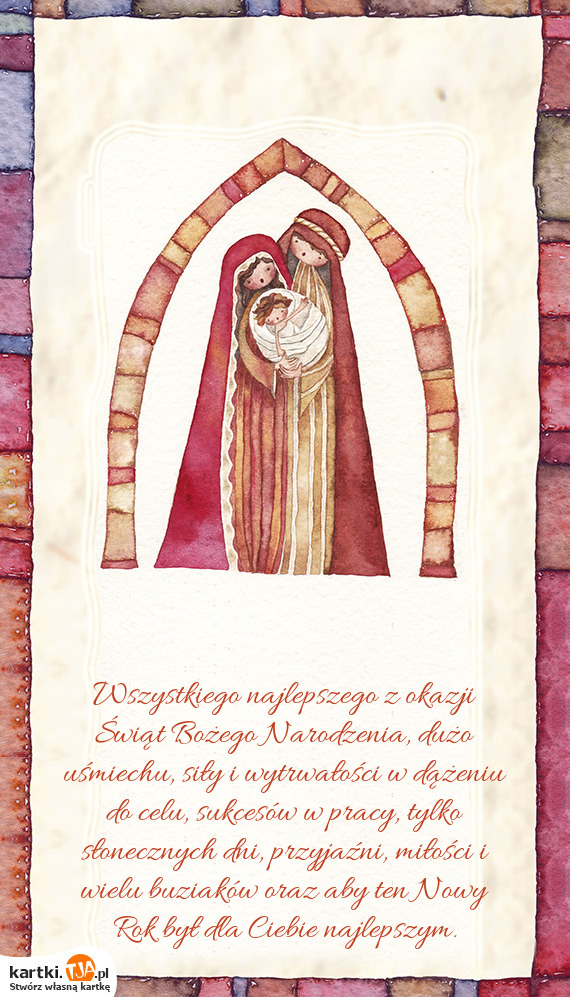 Wszystkiego najlepszego z okazji
Świąt Bożego Narodzenia, dużo
uśmiechu, siły i wytrwałości w dążeniu
do celu, sukcesów w pracy, tylko
słonecznych dni, przyjaźni, miłości i
wielu buziaków oraz aby ten Nowy
Rok był dla Ciebie najlepszym.
kartki.TJA.pl
Stwórz własną kartkę